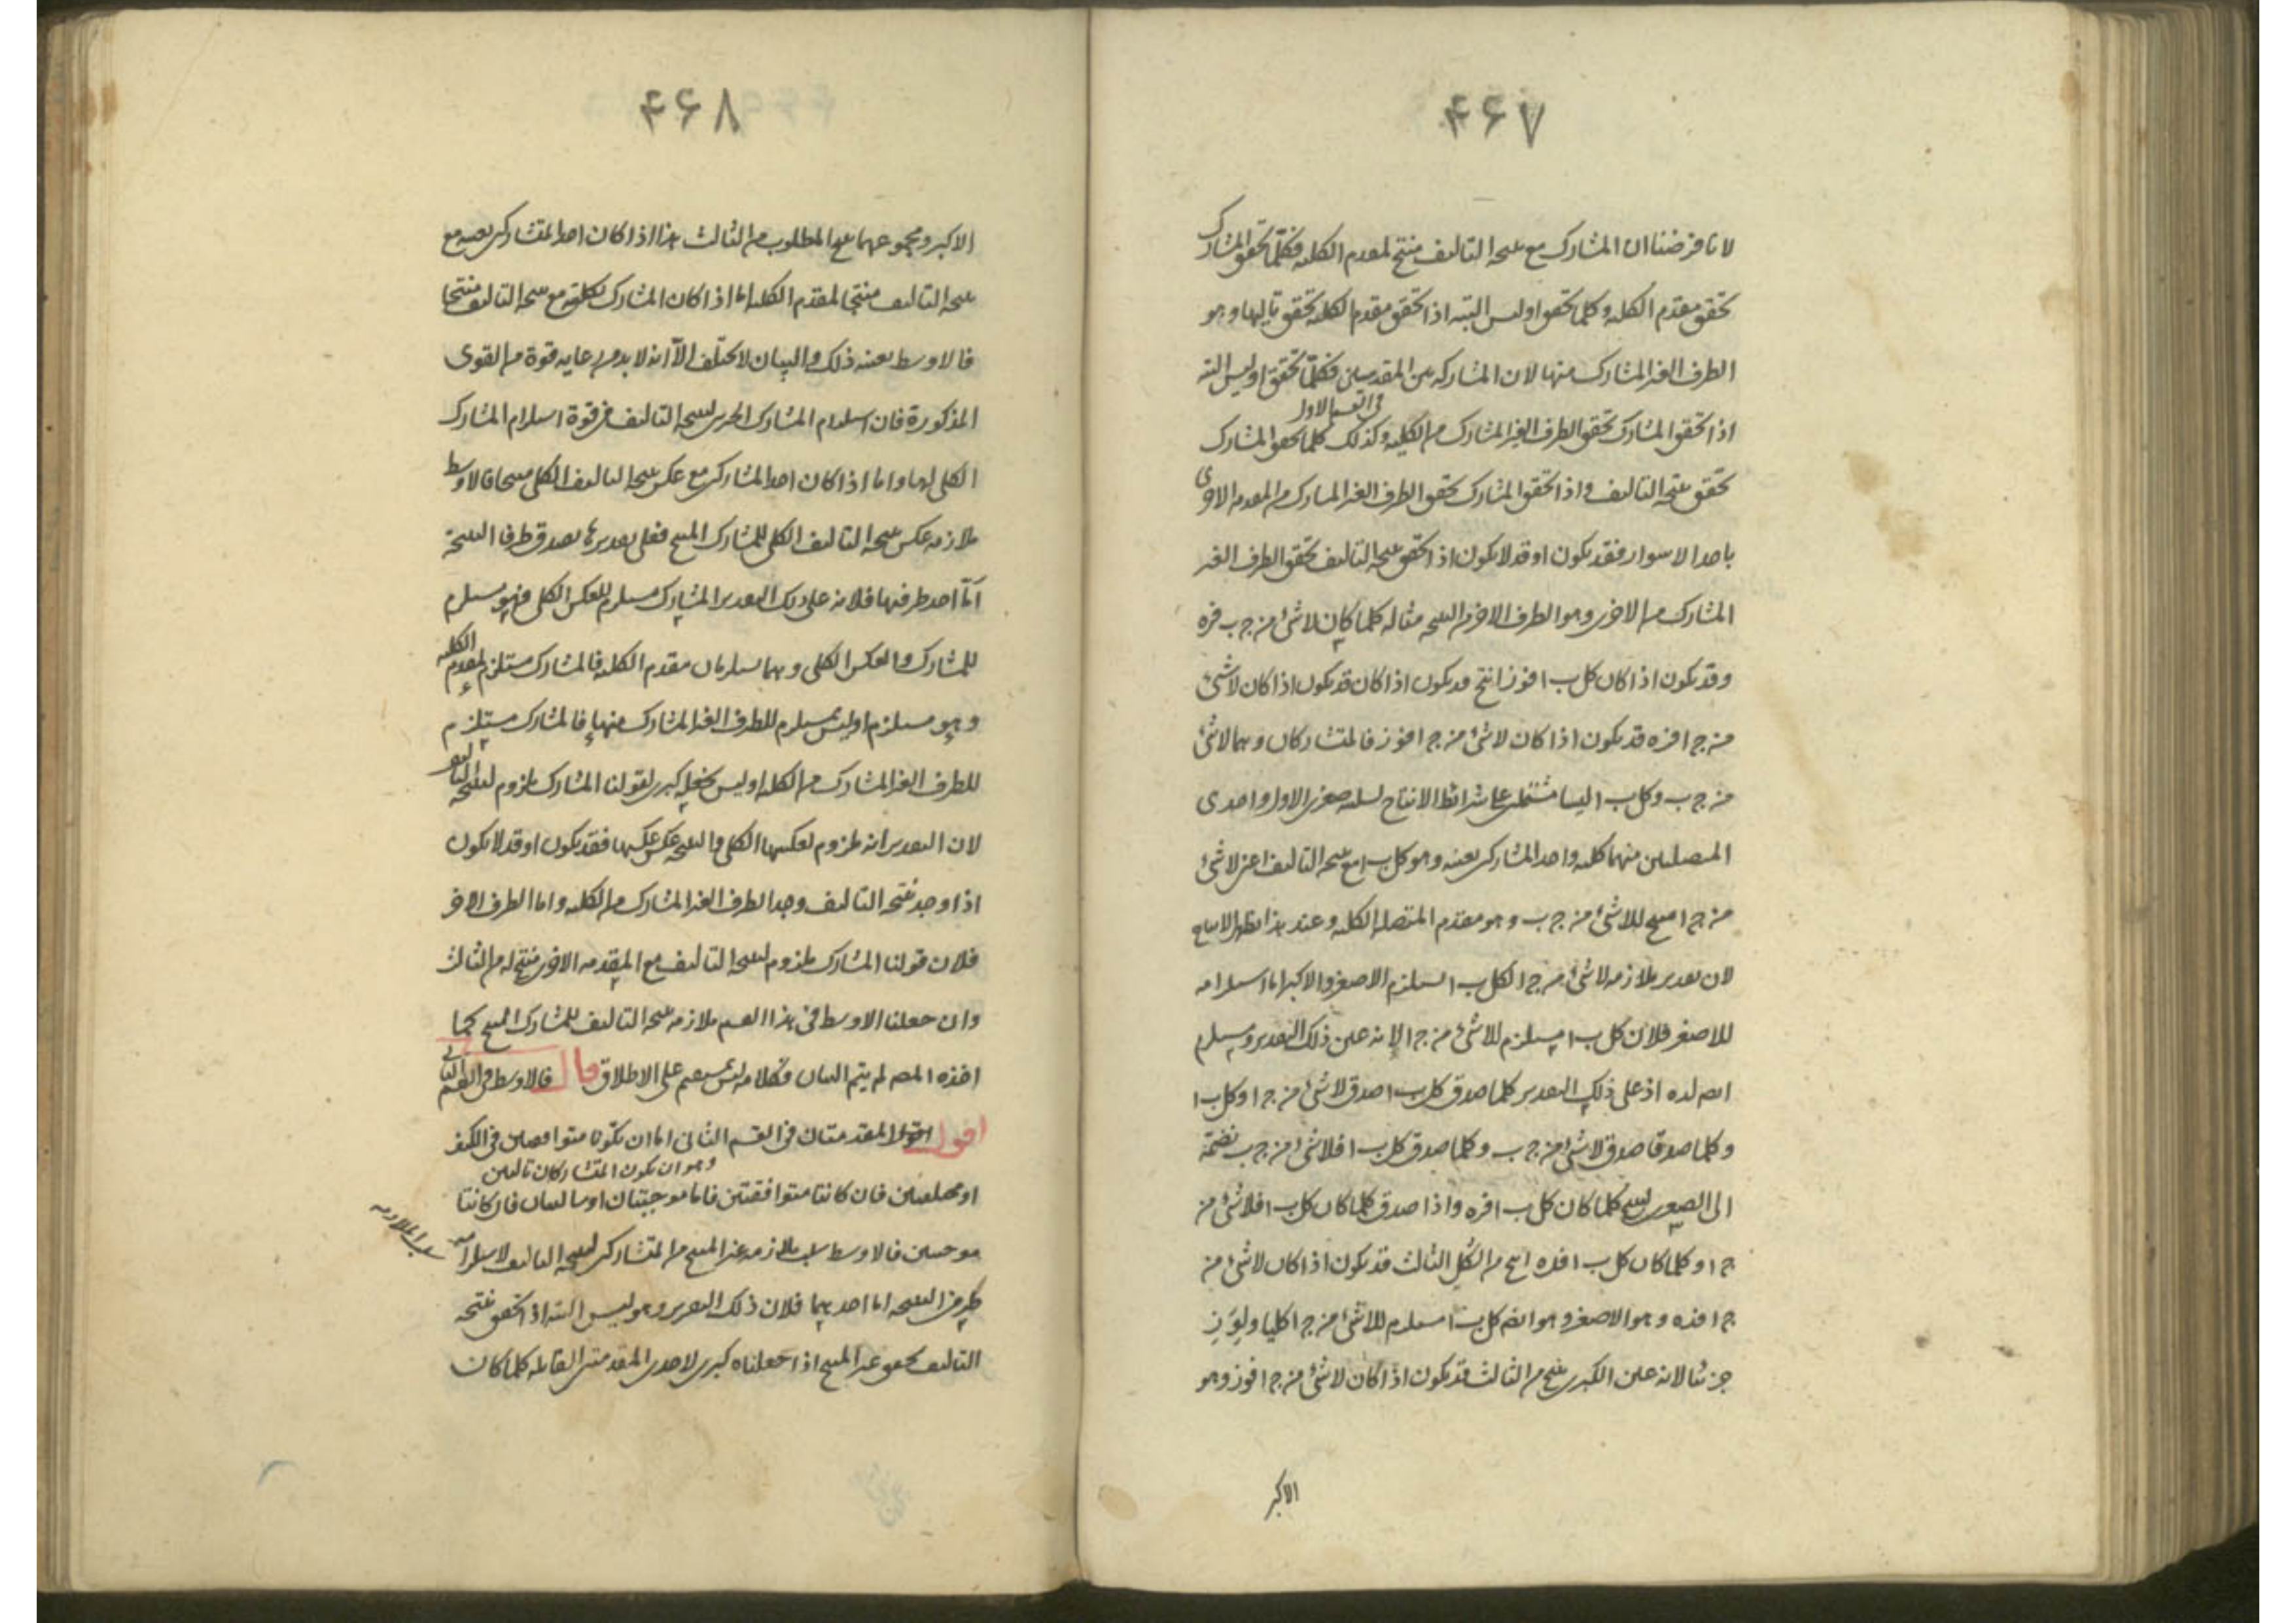 ۴۶۷
لانا فرضنا ان المشارك مع نتيجة التاليف منتج لمقدم الكلية فكلما تحقق المشارك
تحقق مقدم الكلية وكلما تحقق اوليس البتة اذا تحقق مقدم الكلية تحقق تاليها وهو
الطرف الغير المشارك منها لان المشاركة بين المقدمين فكلما تحقق اوليس البتة
في القسم الاول
اذا تحقق المشارك تحقق الطرف الغير المشارك من الكلية وكذلك كلما تحقق المشارك
تحقق نتيجة التاليف واذا تحقق المشارك تحقق الطرف الغير المشارك من المقدمة الاخرى
باحد الاسوار فقد يكون او قد لا يكون اذا تحقق نتيجة التاليف تحقق الطرف الغير
المشارك من الاخرى وهو الطرف الاخر من النتيجة مثاله كلما كان لا شئ من ج ب فره
وقد يكون اذا كان كل ب ا فوز انتج قد يكون اذا كان قد يكون اذا كان لا شئ
من ج ا فره قد يكون اذا كان لا شئ من ج ا فوز فالمتشاركان وهما لا شئ
من ج ب وكل ب ا ليسا مشتملين على شرائط الانتاج لسلب صغرى الاول واحدى
المتصلتين منهما كلية واحد المشاركين بعينه وهو كل ب ا مع نتيجة التاليف اعنى لا شئ
من ج ا منتج للا شئ من ج ب وهو مقدم المتصلة الكلية وعند هذا يظهر الانتاج
لان تقدير ملازمة لا شئ من ج ا لكل ب ا يستلزم الاصغر والاكبر اما استلزامه
للاصغر فلان كل ب ا يستلزم للا شئ من ج ا لانه عين ذلك التقدير ويستلزم
ايضا لده اذ على ذلك التقدير كلما صدق كل ب ا صدق لا شئ من ج ا وكل ب ا
وكلما صدقا صدق لا شئ من ج ب وكلما صدق كل ب ا فلا شئ من ج ب نضمه
الى الصغرى لينتج كلما كان كل ب ا فره واذا صدق كلما كان كل ب ا فلا شئ من
ج ا وكلما كان كل ب ا فده انتج من الشكل الثالث قد يكون اذا كان لا شئ من
ج ا فده وهو الاصغر وهو ايضا كل ب ا مستلزم للا شئ من ج ا كليا ولوز
جزئيا لانه عين الكبرى ينتج من الثالث قد يكون اذا كان لا شئ من ج ا فوز وهو
الاكبر
۴۶۸
الاكبر ومجموعهما ينتج المطلوب من الثالث هذا اذا كان احد المتشاركين بعينه مع
نتيجة التاليف منتجا لمقدم الكلية اما اذا كان المشارك بكليته مع نتيجة التاليف منتجا
فالاوسط بعينه ذلك والبيان لا يختلف الا انه لا بد من رعاية قوة من القوى
المذكورة فان استلزام المشارك الجزئى لنتيجة التاليف فى قوة استلزام المشارك
الكلى لها واما اذا كان احد المتشاركين مع عكس نتيجة التاليف الكلى منتجا فالاوسط
ملازمة عكس نتيجة التاليف الكلى للمشارك المنتج فعلى تقديرها يصدق طرفا النتيجة
اما احد طرفيها فلانه على ذلك التقدير المشارك مستلزم للعكس الكلى فهو مستلزم
للمشارك والعكس الكلى وهما يستلزمان مقدم الكلية فالمشارك مستلزم لمقدم الكلية
وهو مستلزم اوليس بمستلزم للطرف الغير المشارك منها فالمشارك مستلزم
للطرف الغير المشارك من الكلية اوليس نجعله كبرى لقولنا المشارك ملزوم لنتيجة التاليف
لان التقدير انه ملزوم لعكسها الكلى والنتيجة عكس عكسها فقد يكون او قد لا يكون
اذا وجد نتيجة التاليف وجد الطرف الغير المشارك من الكلية واما الطرف الاخر
فلان قولنا المشارك ملزوم لنتيجة التاليف مع المقدمة الاخرى منتج له من الثالث
وان جعلنا الاوسط فى هذا القسم ملازمة نتيجة التاليف للمشارك المنتج كما
اخذه المصـ لم يتم البيان وكلامه ليس بمستقيم على الاطلاق قال فالاوسط فى القسم الثانى
اقول المقدمتان فى القسم الثانى اما ان تكونا متوافقتين فى الكيف
وهو ان يكون المتشاركان تاليين
او مختلفتين فان كانتا متوافقتين فاما موجبتان او سالبتان فان كانتا
موجبتين فالاوسط سلب ملازمة غير المنتج من المتشاركين لنتيجة التاليف لاستلزامه
سلب الملازمة
طرفى النتيجة اما احدهما فلان ذلك التقدير وهو ليس البتة اذا تحقق نتيجة
التاليف تحقق غير المنتج اذا جعلناه كبرى لاحدى المقدمتين القائلة كلما كان